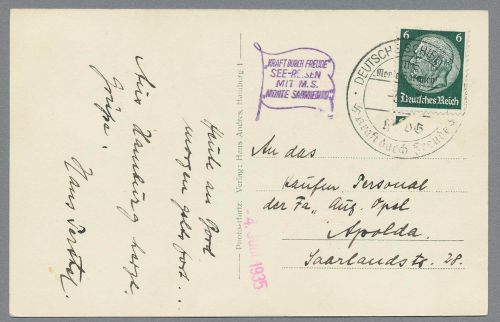 Aus Hamburg herzl.
Grüße.
Hans
Heute an Bord
morgen geht's fort...
Photo-Hartz. Verlag: Hans Andres, Hamburg 1
"KRAFT DURCH FREUDE"
SEE-REISEN
MIT M.S.
MONTE SARMIENTO
4. Juni 1935
DEUTSCHE
Monte Sarmiento
Kraft durch Freude
6 6
Deutsches Reich
An das
Kaufm. Personal
der Fa. Aug. Opel
Apolda.
Saarlandstr. 28.